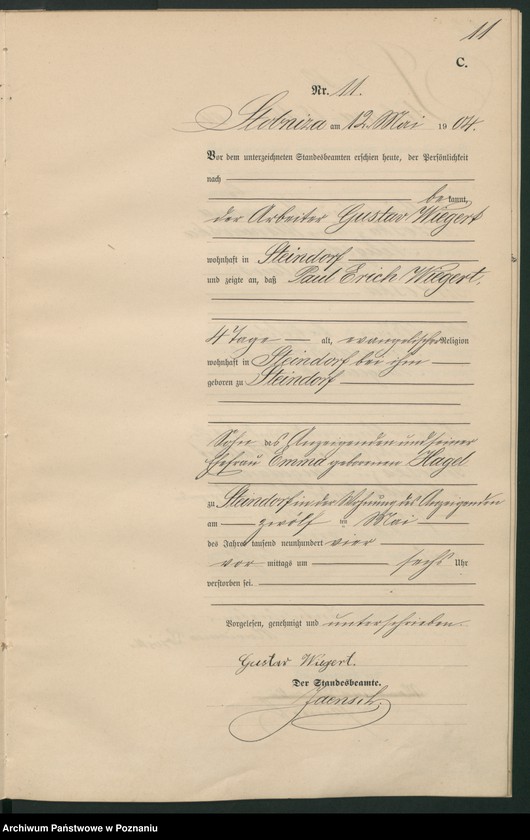 11
C.
Nr. 11.
Stobnica am 12 Mai 1904.
Vor dem unterzeichneten Standesbeamten erschien heute, der Persönlichkeit
nach
bekannt,
der Arbeiter Gustav Wiegert
wohnhaft in Steindorf
und zeigte an, daß Paul Erich Wiegert,
4 Tage alt, evangelischer Religion
wohnhaft in Steindorf bei ihm
geboren zu Steindorf
Sohn des Anzeigenden und seiner
Ehefrau Emma geborenen Hagel
zu Steindorf in der Wohnung des Anzeigenden
am zwölf im Mai
des Jahres tausend neunhundert vier
vor mittags um sechs Uhr
verstorben sei.
Vorgelesen, genehmigt und unterschrieben.
Gustav Wiegert.
Der Standesbeamte.
Jaensch
Archiwum Państwowe w Poznaniu